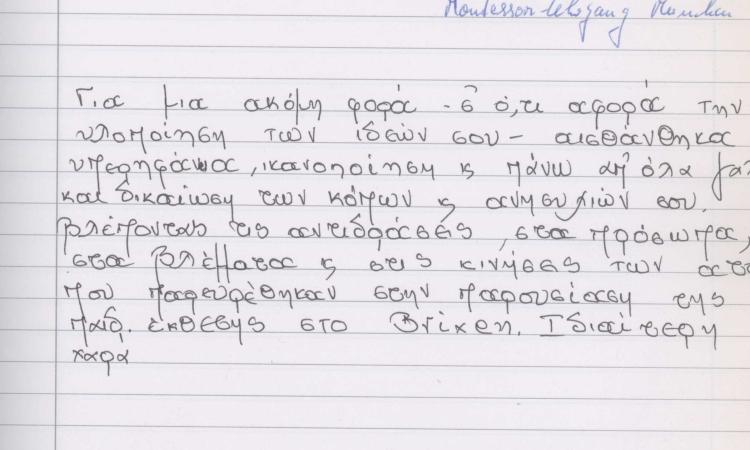 Montessori-Lehrgang München
Για μια ακόμη φορά - σ' ό,τι αφορά την
υλοποίηση των ιδεών σου - αισθάνθηκα
υπερηφάνεια, ικανοποίηση κ πάνω απ' όλα
και δικαίωση των κόπων κ ανησυχιών σου.
βλέποντας τις αντιδράσεις, στα πρόσωπα,
στα βλέμματα κ στις κινήσεις των
που παρευρέθηκαν στην παρουσίαση της
παιδ. έκθεσης στο Brixen. Ιδιαίτερη
χαρά